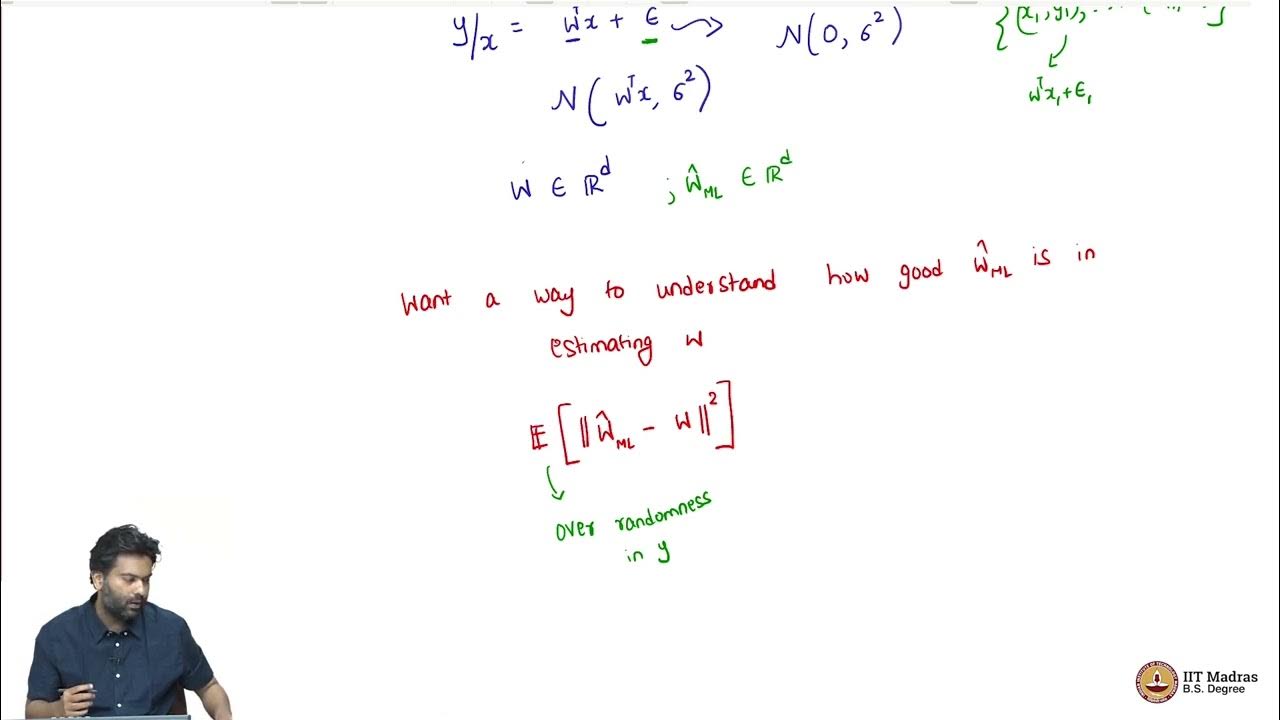 y/x = wᵀx + ϵ ⤳ N(0, σ²)
{(x₁, y₁), ...
wᵀx₁+ϵ₁
N(wᵀx, σ²)
W ∈ ℝᵈ ; ŵ_ML ∈ ℝᵈ
Want a way to understand how good ŵ_ML is in
estimating w
𝔼[‖ŵ_ML - W‖²]
over randomness
in y
IIT Madras
B.S. Degree